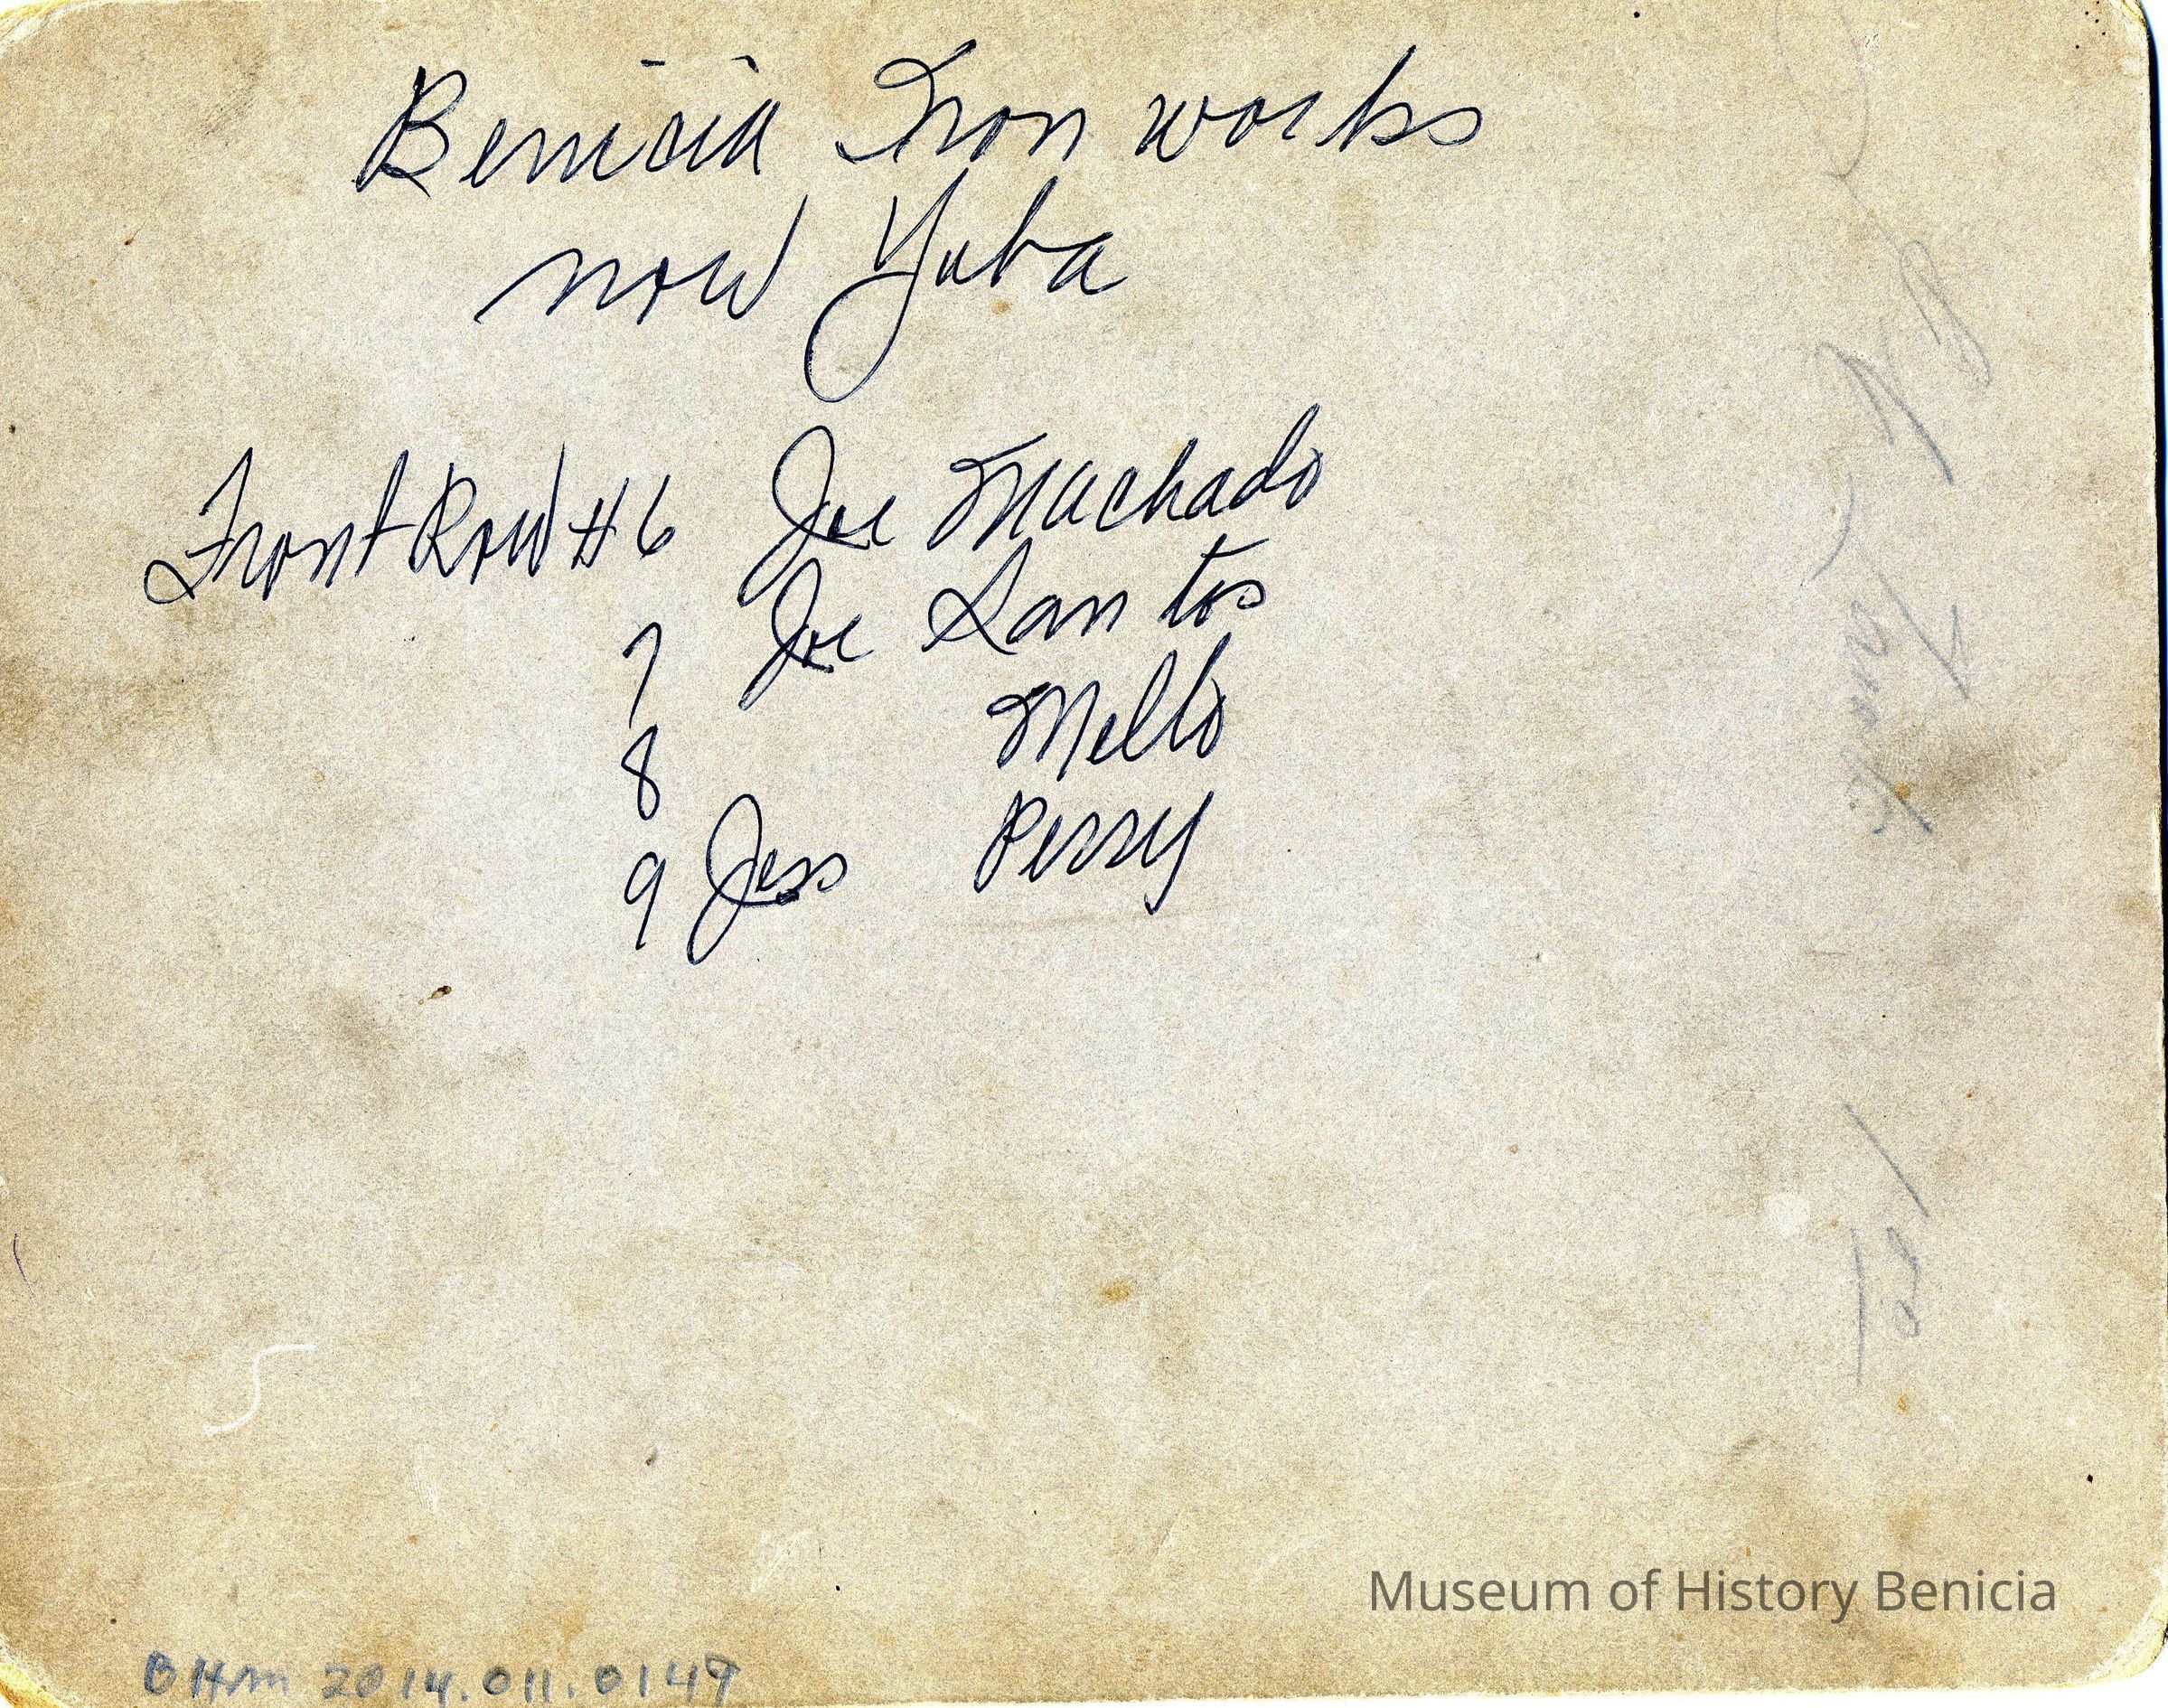 Benicia Iron works
now Yuba
Front Row #6 Joe Machado
7 Joe Santos
8 Mello
9 Jess Perry
Museum of History Benicia
BHM 2014.011.0149